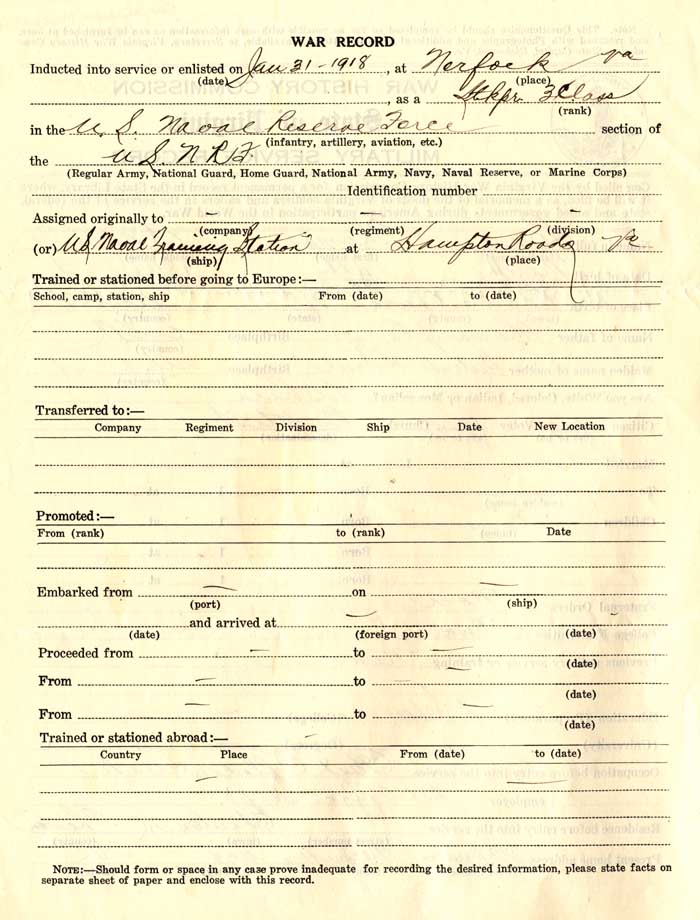 WAR RECORD
Inducted into service or enlisted on Jan 31-1918, at Norfolk Va
(date) (place)
, as a Stkpr. 3 Class
(rank)
in the U. S. Naval Reserve Force section of
(infantry, artillery, aviation, etc.)
the U.S.N.R.F.
(Regular Army, National Guard, Home Guard, National Army, Navy, Naval Reserve, or Marine Corps)
Identification number
Assigned originally to — — —
(company) (regiment) (division)
(or) U.S. Naval Training Station at Hampton Roads Va
(ship) (place)
Trained or stationed before going to Europe:—
School, camp, station, ship From (date) to (date)
Transferred to:—
Company Regiment Division Ship Date New Location
Promoted:—
From (rank) to (rank) Date
Embarked from — on —
(port) (ship)
and arrived at — -
(date) (foreign port) (date)
Proceeded from — to —
(date)
From — to —
(date)
From — to —
(date)
Trained or stationed abroad:— -
Country Place From (date) to (date)
— —
NOTE:—Should form or space in any case prove inadequate for recording the desired information, please state facts on
separate sheet of paper and enclose with this record.